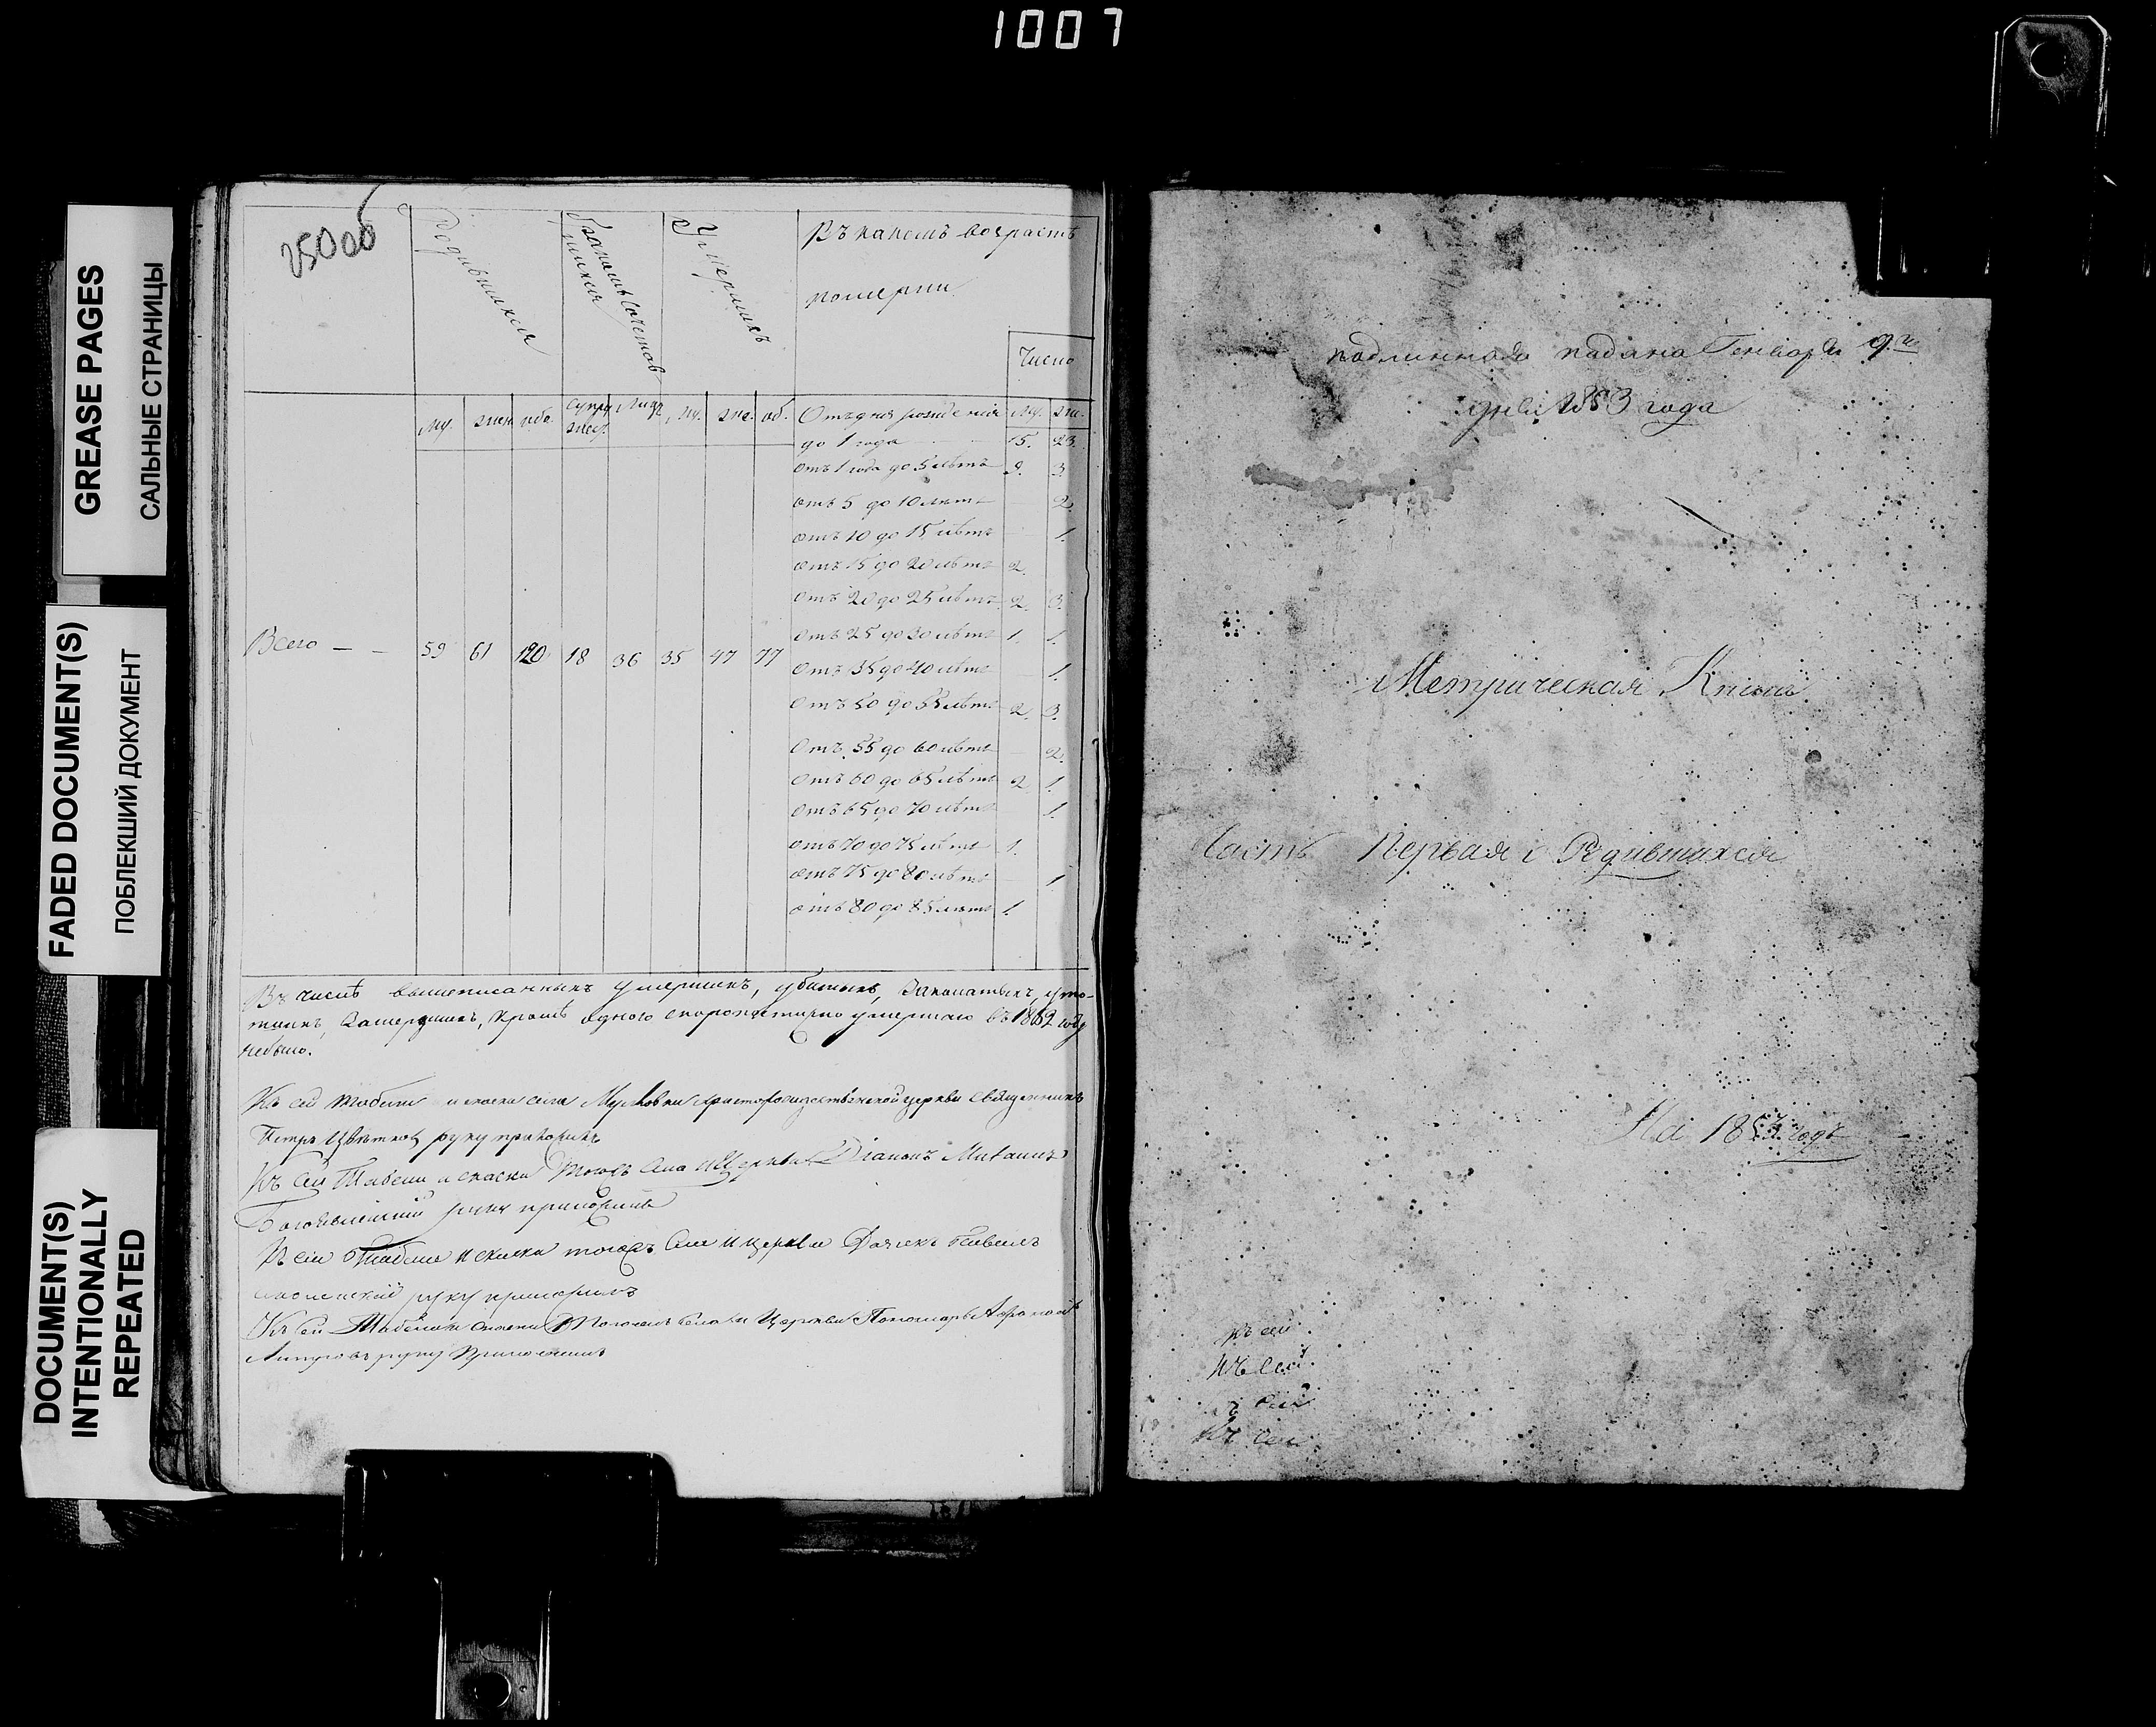 1007
GREASE PAGES
САЛЬНЫЕ СТРАНИЦЫ
FADED DOCUMENT(S)
ПОБЛЕКШИЙ ДОКУМЕНТ
DOCUMENT(S)
INTENTIONALLY
REPEATED
250об
Родившихся
Бракомъ сочетав
шихся
Умершихъ
Въ какомъ возрастѣ
померли
Число
му. жен. обо. супру Лицъ му. же. об. Отъ дня рожденія му. же.
жест.
до 1 года 15. 23.
отъ 1 года до 5 лѣтъ 9. 3.
отъ 5 до 10 лѣтъ — 2.
отъ 10 до 15 лѣтъ — 1.
отъ 15 до 20 лѣтъ 2.
отъ 20 до 25 лѣтъ 2. 3.
отъ 25 до 30 лѣтъ 1. 1.
Всего — — 59 61 120 18 36 35 42 77
отъ 35 до 40 лѣтъ — 1.
отъ 50 до 55 лѣтъ 2. 3.
отъ 55 до 60 лѣтъ — 2.
отъ 60 до 65 лѣтъ 2 1.
отъ 65 до 70 лѣтъ 1.
отъ 70 до 75 лѣтъ 1.
отъ 75 до 80 лѣтъ 1.
отъ 80 до 85 лѣтъ 1.
Въ числѣ вышеписанныхъ умершихъ, убитыхъ, уто-
пшихъ, замерзшихъ, кромѣ одного скоропостижно умершаго въ 1852 году
небыло.
Къ сей табели и сказки села христорождественской церкви священникъ
Петръ Цвѣтковъ руку приложилъ
Къ сей Табели и сказки тогожъ села и Церкви Діаконъ
руку приложилъ
Къ сей табели и сказки тогожъ села и церкви Дьячекъ Павелъ
руку приложилъ
Къ сей Табели и сказки тогожъ села и Церкви Пономарь
руку приложилъ
подлинная подана Генваря 9го
дня 1853 года
Метрическая Книга
Часть Первая о Родившихся
На 1853 годъ
Къ сей
Къ сей
ъ сей
Къ сей